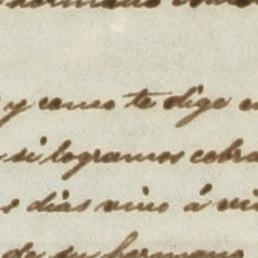 hermano
y como te dige
si logramos cobra
dias vino á vi
de su hermano